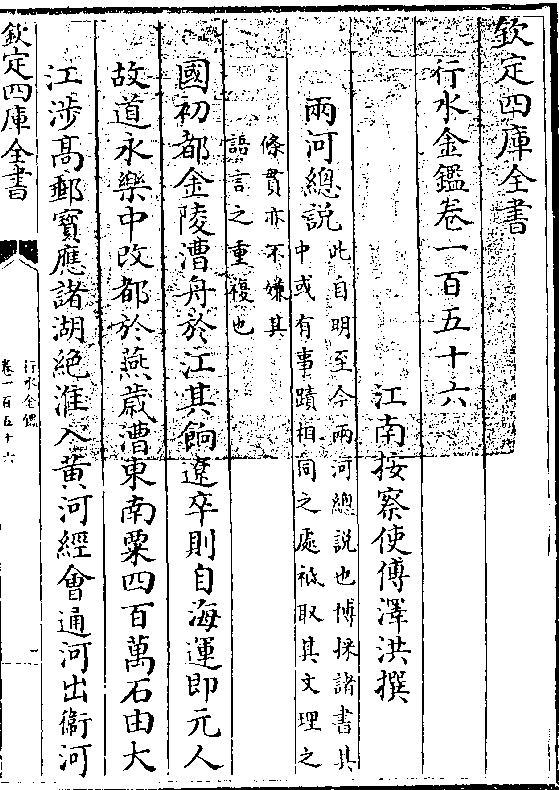 欽定四庫全書
行水金鑑卷一百五十六
江南按察使傅澤洪撰
兩河總說
此自明至今兩河總說也博採諸書其
中或有事蹟相同之處袛取其文理之
條貫亦不嫌其
語言之重複也
國初都金陵漕舟於江其餉遼卒則自海運即元人
故道永樂中改都於燕歲漕東南粟四百萬石由大
江涉髙郵寳應諸湖絶淮入黄河經會通河出衞河
欽定四庫全書
行水金鑑
卷一百五十六
一